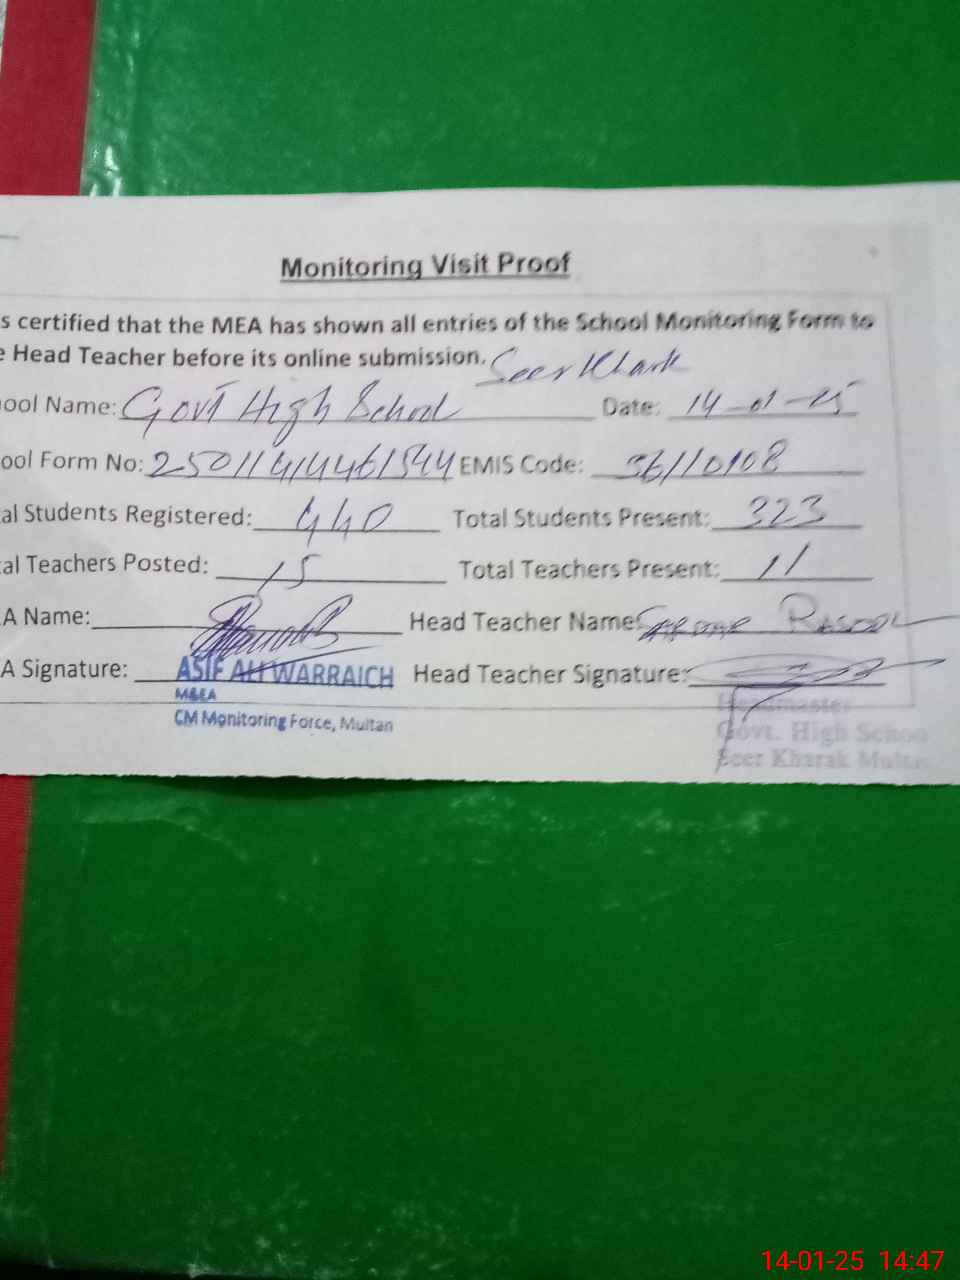 Monitoring Visit Proof
s certified that the MEA has shown all entries of the School Monitoring Form to
e Head Teacher before its online submission.
Seer Khark
ool Name: Govt High School Date: 14-01-25
ool Form No: 25011414461544 EMIS Code: 36110108
al Students Registered: 440 Total Students Present: 323
al Teachers Posted: 15 Total Teachers Present: 11
A Name: Head Teacher Name: Sardar Rasool
A Signature: Head Teacher Signature:
ASIF ALI WARRAICH
M&EA
CM Monitoring Force, Multan
Headmaster
Govt. High Schoo
Seer Kharak Multa
14-01-25 14:47